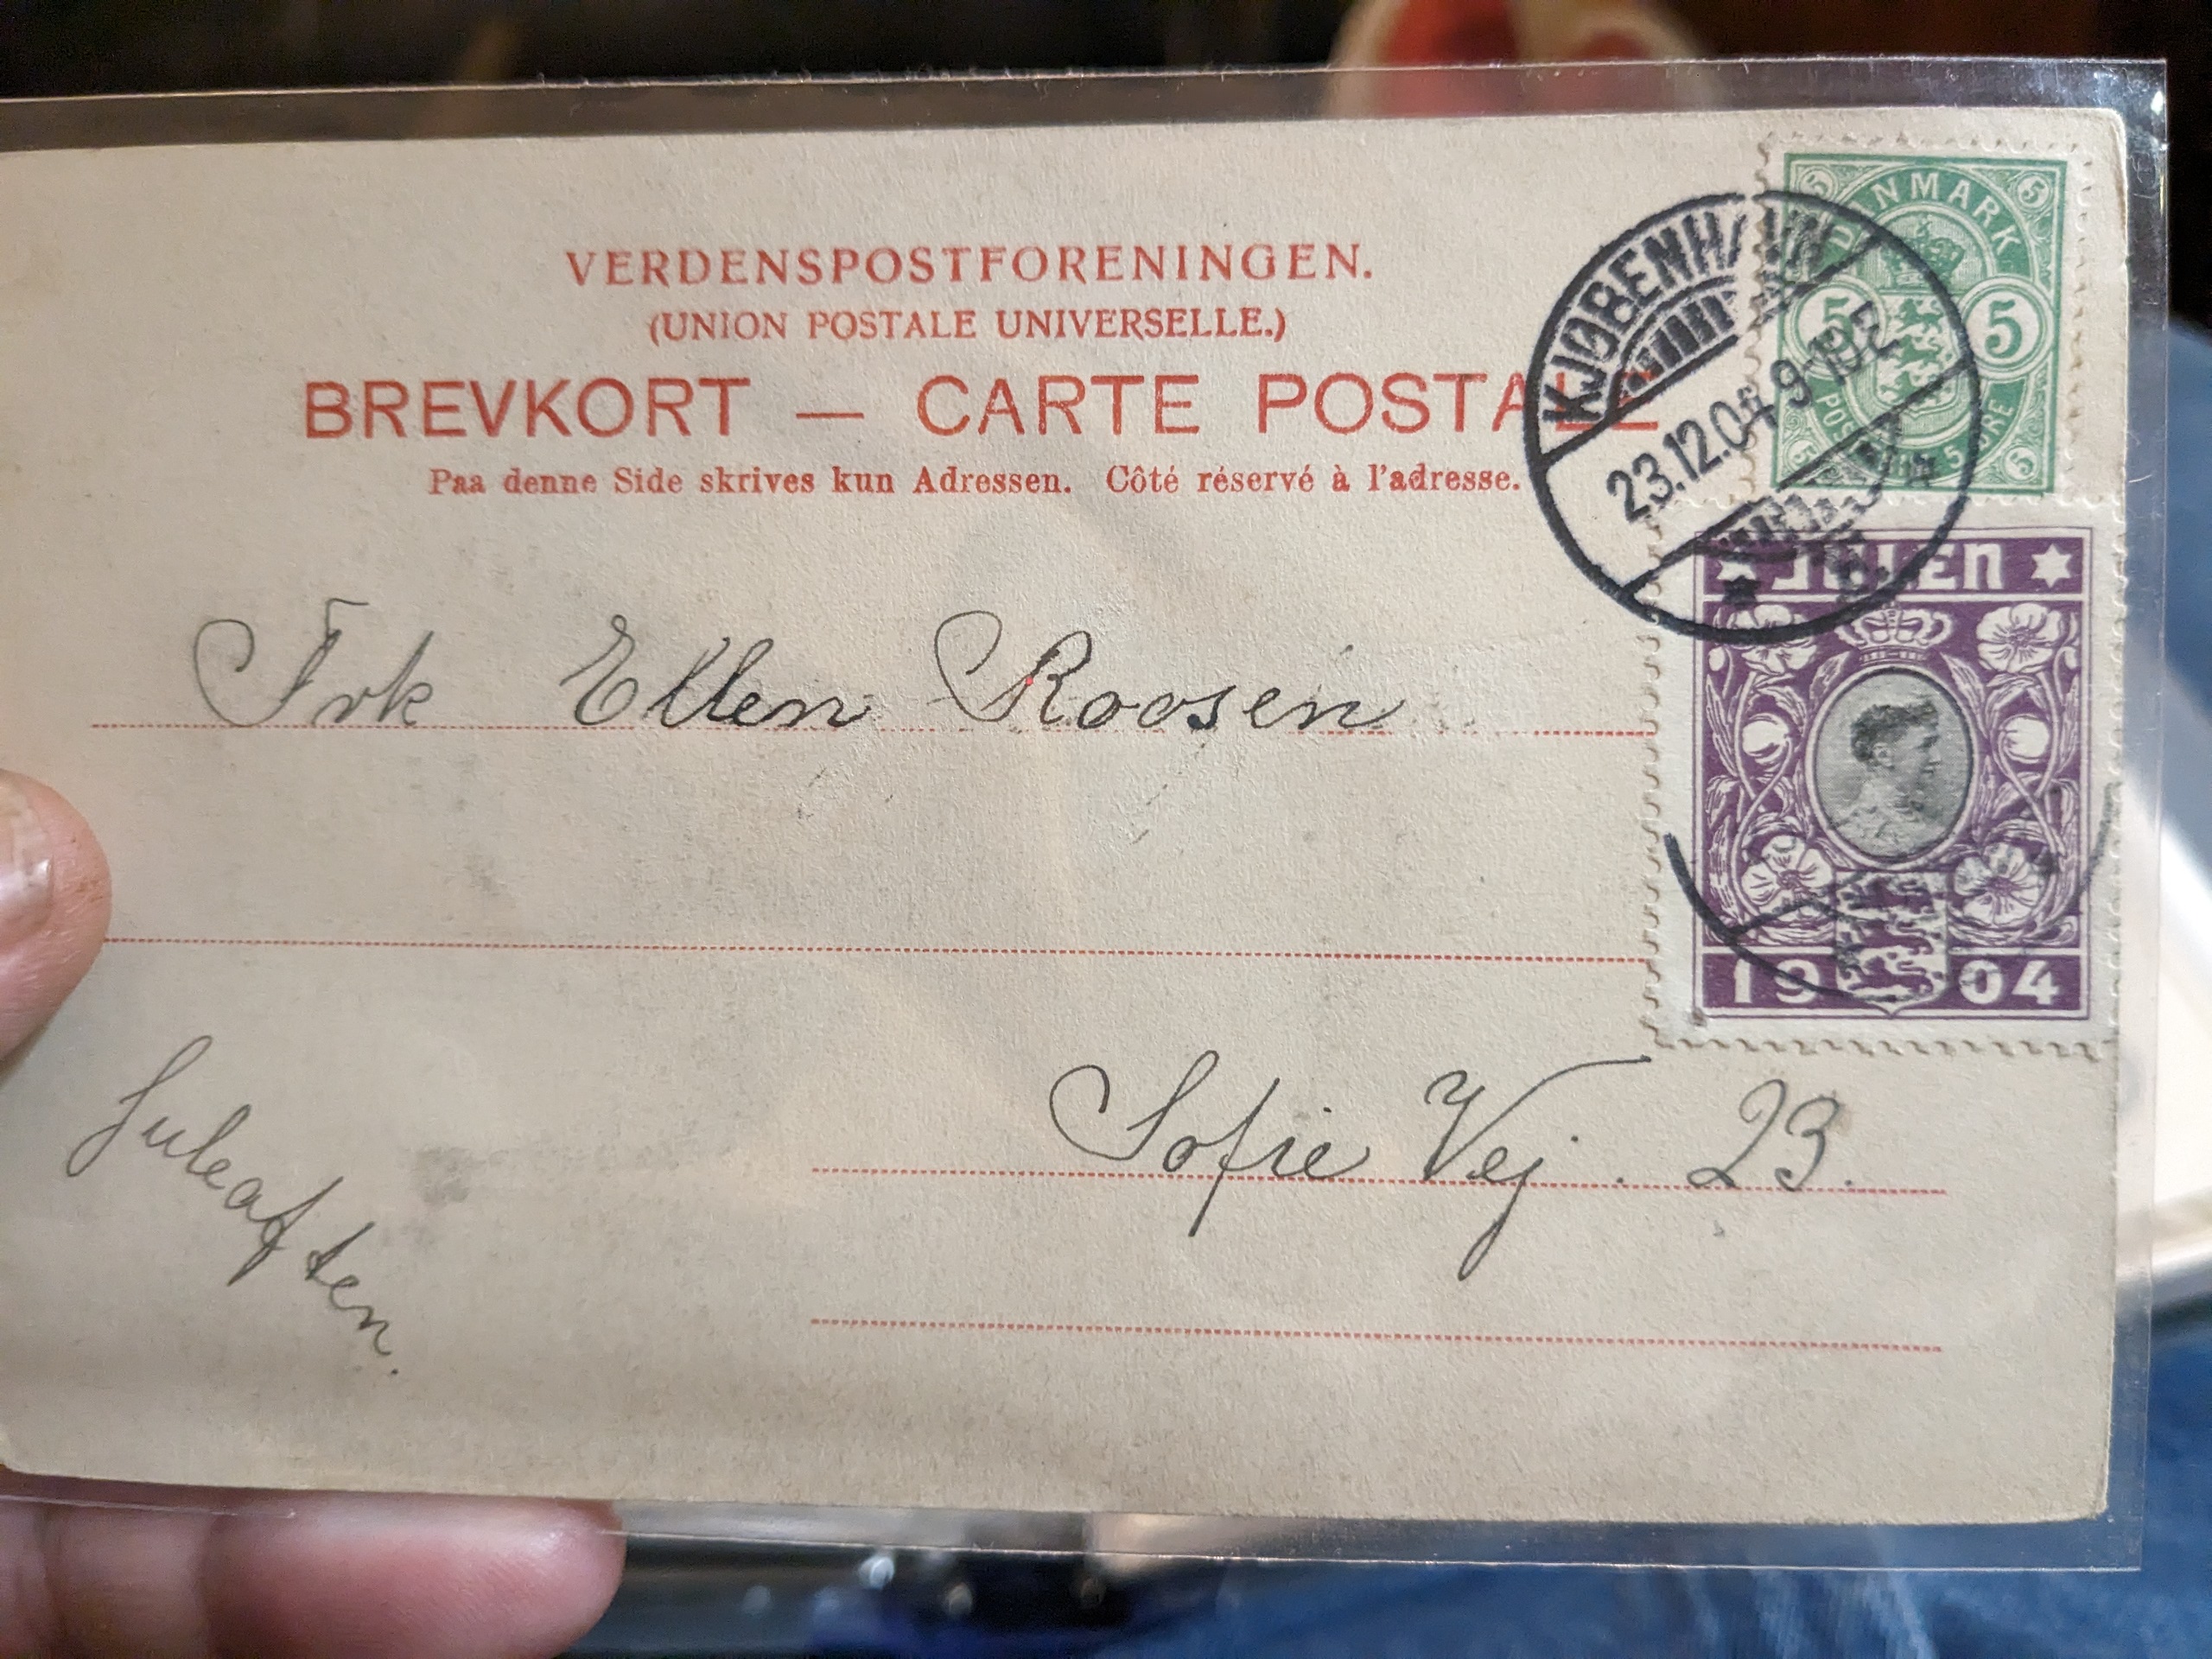 VERDENSPOSTFORENINGEN.
(UNION POSTALE UNIVERSELLE.)
BREVKORT — CARTE POSTALE
Paa denne Side skrives kun Adressen. Côté réservé à l'adresse.
KJØBENHAVN
23.12.04 9-10E
DANMARK
5 5
5 5
5 5
JULEN
1904
Frk Ellen Roosen
Sofie Vej. 23.
Juleaften.